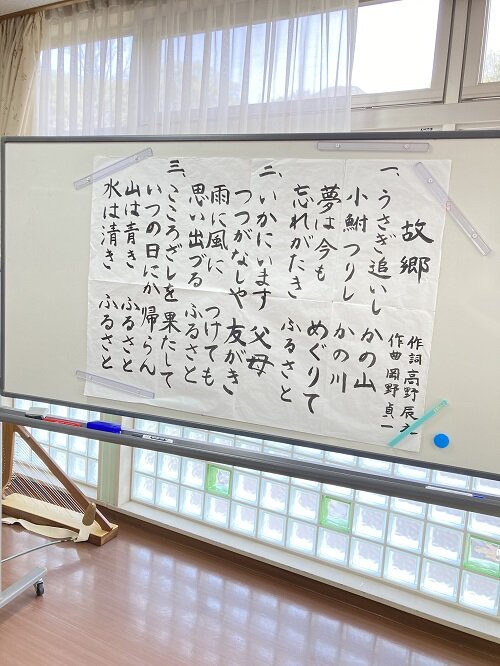 故郷
作詞 高野辰之
作曲 岡野貞一
一、うさぎ追いし かの山
小鮒つりし かの川
夢は今も めぐりて
忘れがたき ふるさと
二、いかにいます 父母
つつがなしや 友がき
雨に風に つけても
思い出づる ふるさと
三、こころざしを 果たして
いつの日にか 帰らん
山は青き ふるさと
水は清き ふるさと